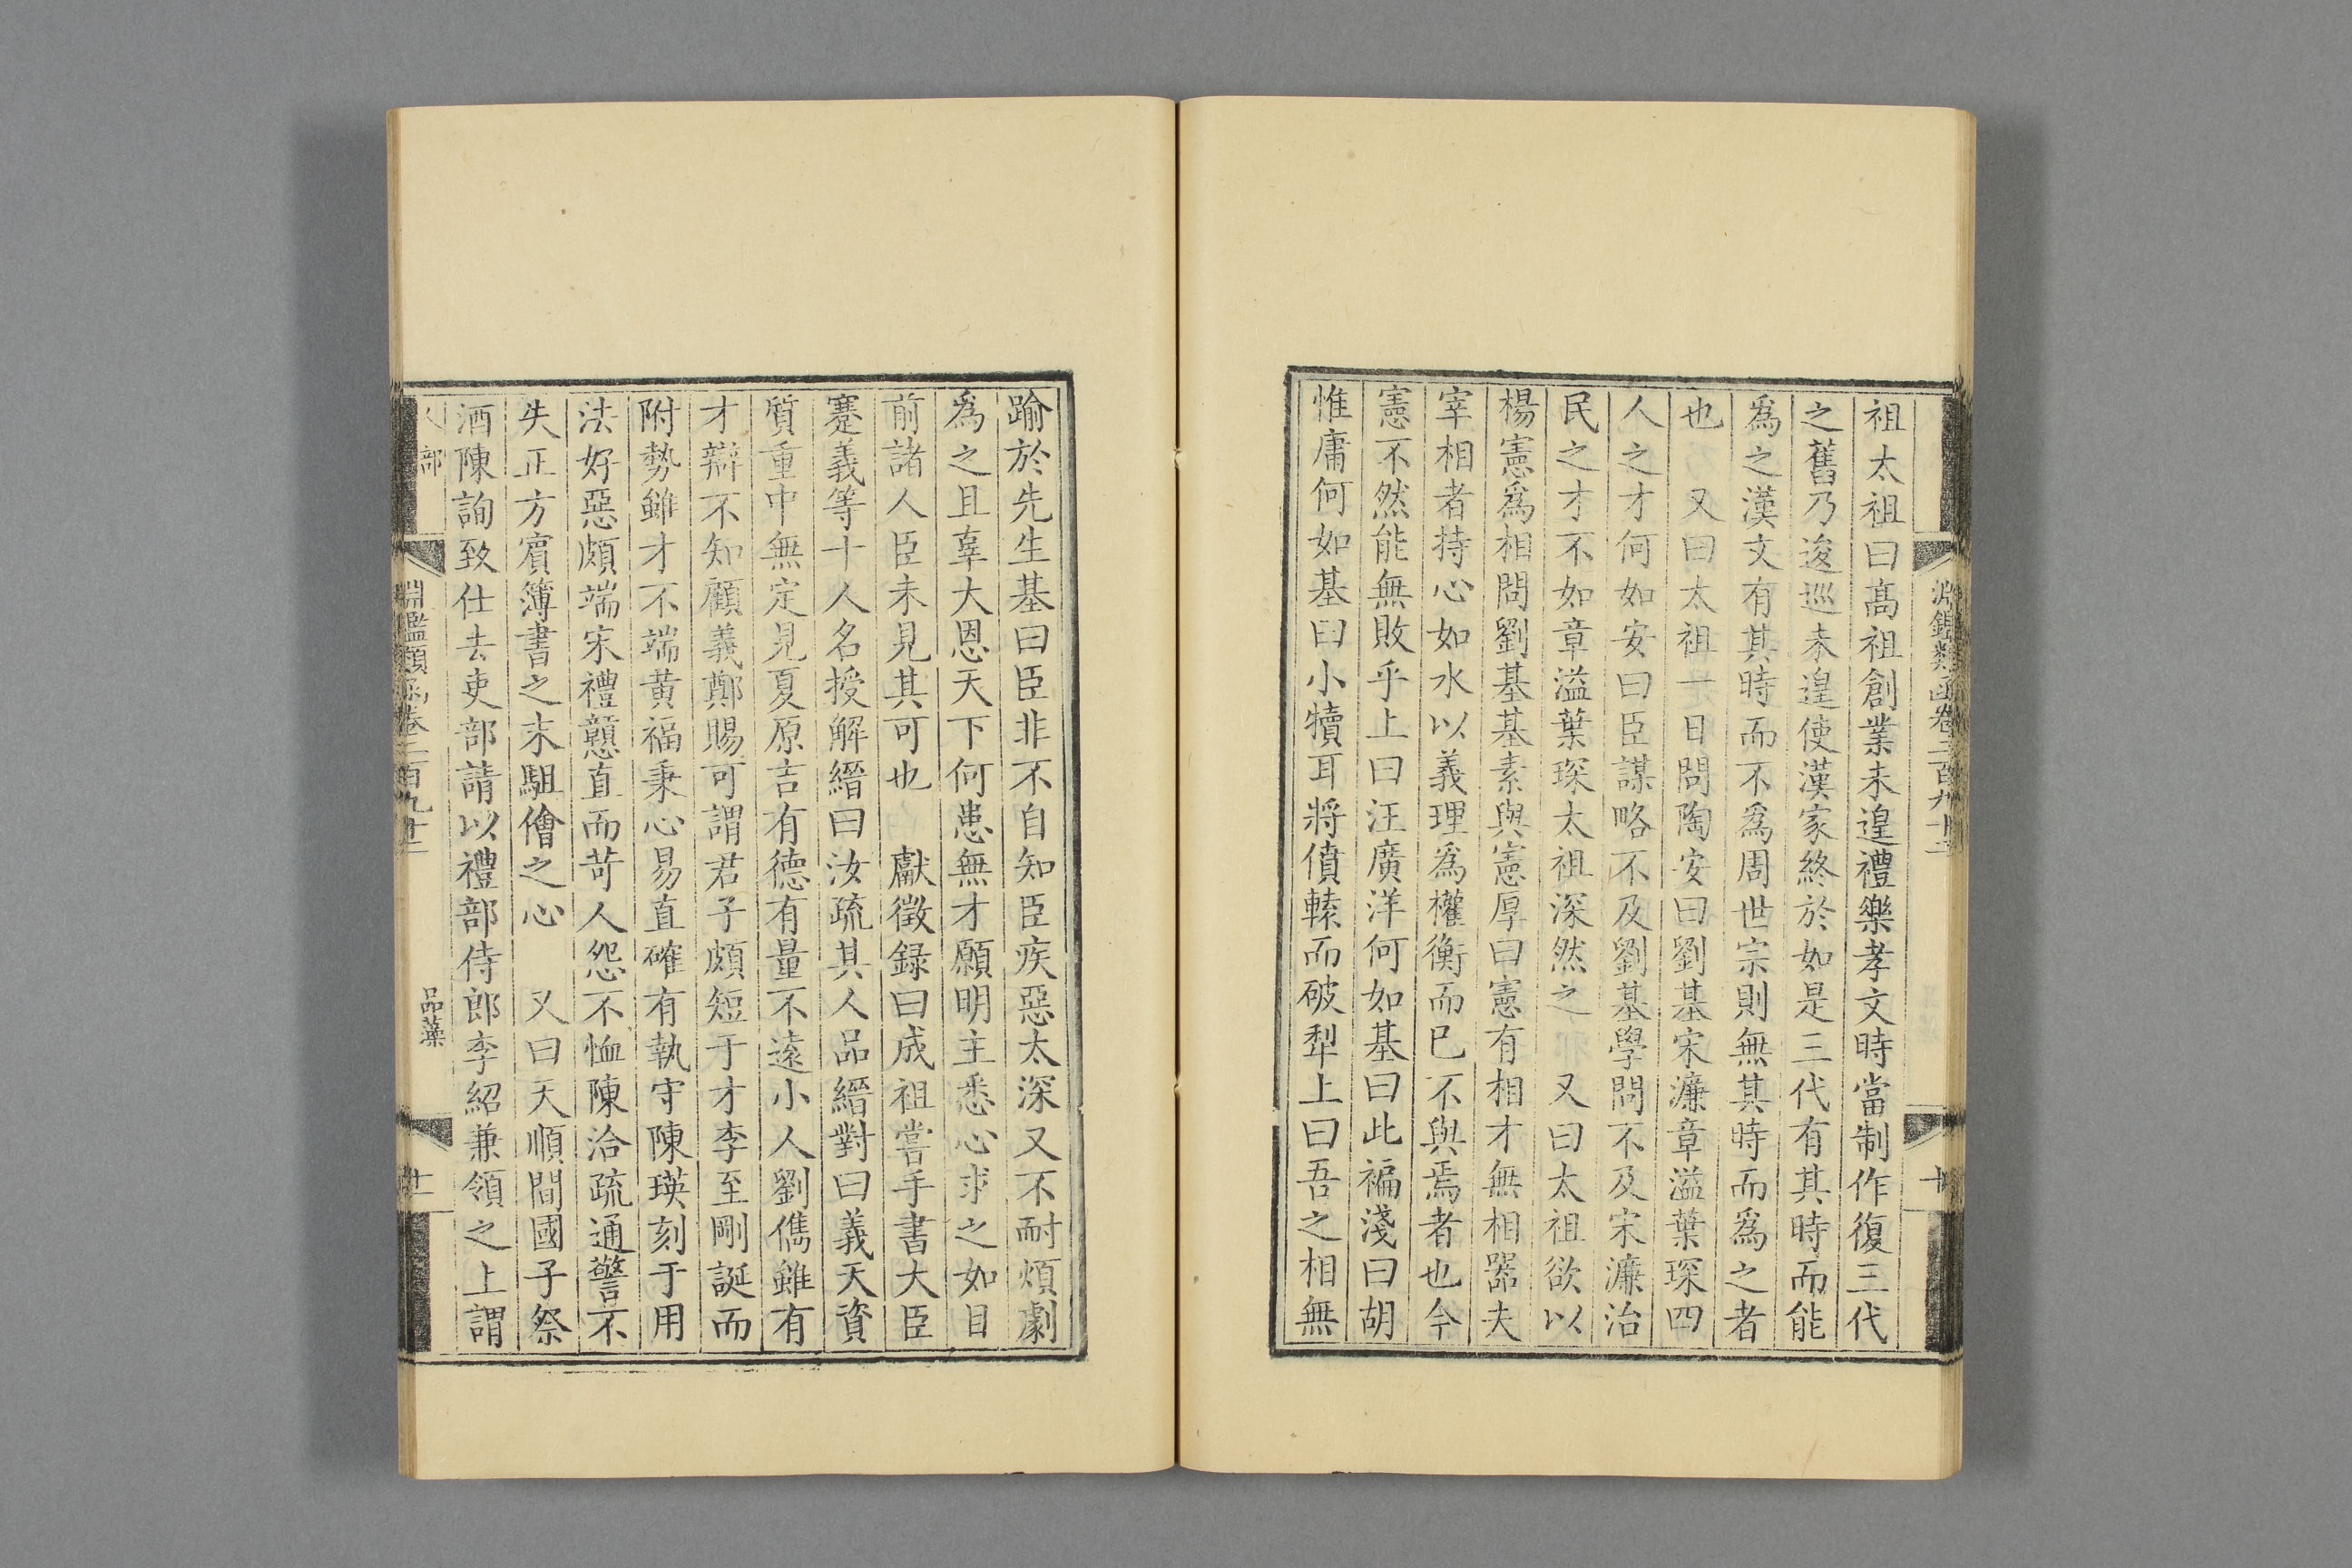 淵鑑類函卷二百九十三
十
祖太祖曰高祖創業未遑禮樂孝文時當制作復三代
之舊乃逡巡未遑使漢家終於如是三代有其時而能
爲之漢文有其時而不爲周世宗則無其時而爲之者
也 又曰太祖一日問陶安曰劉基宋濂章溢葉琛四
人之才何如安曰臣謀略不及劉基學問不及宋濂治
民之才不如章溢葉琛太祖深然之 又曰太祖欲以
楊憲爲相問劉基基素與憲厚曰憲有相才無相器夫
宰相者持心如水以義理爲權衡而已不與焉者也今
憲不然能無敗乎上曰汪廣洋何如基曰此褊淺曰胡
惟庸何如基曰小犢耳將僨轅而破犁上曰吾之相無
踰於先生基曰臣非不自知臣疾惡太深又不耐煩劇
爲之且辜大恩天下何患無才願明主悉心求之如目
前諸人臣未見其可也 獻徵録曰成祖嘗手書大臣
蹇義等十人名授解縉曰汝疏其人品縉對曰義天資
質重中無定見夏原吉有德有量不遠小人劉儁雖有
才辯不知顧義鄭賜可謂君子頗短于才李至剛誕而
附勢雖才不端黃福秉心易直確有執守陳瑛刻于用
法好惡頗端宋禮戇直而苛人怨不恤陳洽疏通警不
失正方賓簿書之末駔儈之心 又曰天順間國子祭
酒陳詢致仕去吏部請以禮部侍郎李紹兼領之上謂
部
淵鑑類函卷二百九十三
品藻
十一